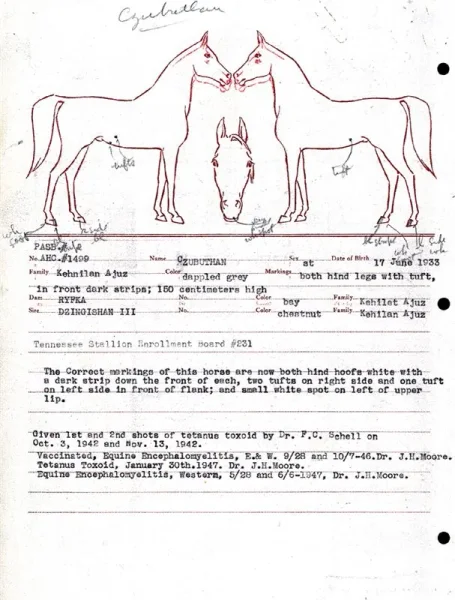 Czubuthan
tufts
tuft
PASB.#
No. AHC.#1499 Name CZUBUTHAN Sex st Date of Birth 17 June 1933
Family Kehnilan Ajuz Color dappled grey Markings both hind legs with tuft,
in front dark strips; 160 centimeters high
Dam RYFKA No. Color bay Family Kehilet Ajuz
Sire DZINGISHAN III No. Color chestnut Family Kehilan Ajuz
Tennessee Stallion Enrollment Board #231
The Correct markings of this horse are now both hind hoofs white with
a dark strip down the front of each, two tufts on right side and one tuft
on left side in front of flank; and small white spot on left of upper
lip.
Given 1st and 2nd shots of tetanus toxoid by Dr. F.C. Schell on
Oct. 3, 1942 and Nov. 13, 1942.
Vaccinated, Equine Encephalomyelitis, E.& W. 9/28 and 10/7-46.Dr. J.H.Moore.
Tetanus Toxoid, January 30th.1947. Dr. J.H.Moore.
Equine Encephalomyelitis, Western, 5/28 and 6/6-1947, Dr. J.H.Moore.